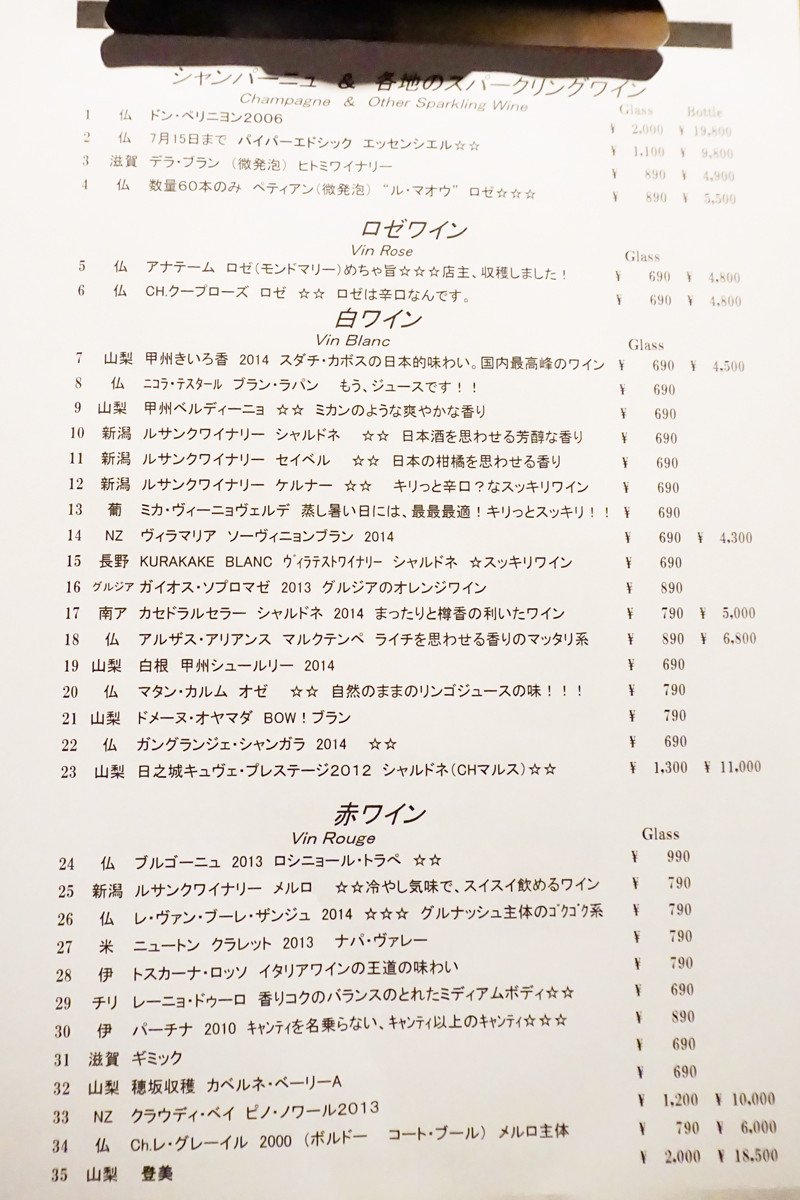 シャンパーニュ & 各地のスパークリングワイン
Champagne & Other Sparkling Wine Glass Bottle
1 仏 ドン・ペリニヨン2006 ¥ 2,000 ¥ 19,800
2 仏 7月15日まで パイパーエドシック エッセンシエル☆☆ ¥ 1,100 ¥ 9,800
3 滋賀 デラ・ブラン (微発泡) ヒトミワイナリー ¥ 890 ¥ 4,900
4 仏 数量60本のみ ペティアン(微発泡) “ル・マオウ” ロゼ☆☆☆ ¥ 890 ¥ 5,500
ロゼワイン
Vin Rose Glass
5 仏 アナテーム ロゼ(モンドマリー)めちゃ旨☆☆☆店主、収穫しました! ¥ 690 ¥ 4,800
6 仏 CH.クープローズ ロゼ ☆☆ ロゼは辛口なんです。 ¥ 690 ¥ 4,800
白ワイン
Vin Blanc Glass
7 山梨 甲州きいろ香 2014 スダチ・カボスの日本的味わい。国内最高峰のワイン ¥ 690 ¥ 4,500
8 仏 ニコラ・テスタール ブラン・ラパン もう、ジュースです!! ¥ 690
9 山梨 甲州ベルディーニョ ☆☆ ミカンのような爽やかな香り ¥ 690
10 新潟 ルサンクワイナリー シャルドネ ☆☆ 日本酒を思わせる芳醇な香り ¥ 690
11 新潟 ルサンクワイナリー セイベル ☆☆ 日本の柑橘を思わせる香り ¥ 690
12 新潟 ルサンクワイナリー ケルナー ☆☆ キリっと辛口?なスッキリワイン ¥ 690
13 葡 ミカ・ヴィーニョヴェルデ 蒸し暑い日には、最最最適!キリっとスッキリ!! ¥ 690
14 NZ ヴィラマリア ソーヴィニョンブラン 2014 ¥ 690 ¥ 4,300
15 長野 KURAKAKE BLANC ヴィラテストワイナリー シャルドネ ☆スッキリワイン ¥ 690
16 グルジア ガイオス・ソプロマゼ 2013 グルジアのオレンジワイン ¥ 890
17 南ア カセドラルセラー シャルドネ 2014 まったりと樽香の利いたワイン ¥ 790 ¥ 5,000
18 仏 アルザス・アリアンス マルクテンペ ライチを思わせる香りのマッタリ系 ¥ 890 ¥ 6,800
19 山梨 白根 甲州シュールリー 2014 ¥ 690
20 仏 マタン・カルム オゼ ☆☆ 自然のままのリンゴジュースの味!!! ¥ 790
21 山梨 ドメーヌ・オヤマダ BOW!ブラン ¥ 790
22 仏 ガングランジェ・シャンガラ 2014 ☆☆ ¥ 690
23 山梨 日之城キュヴェ・プレステージ2012 シャルドネ(CHマルス)☆☆ ¥ 1,300 ¥ 11,000
赤ワイン
Vin Rouge Glass
24 仏 ブルゴーニュ 2013 ロシニョール・トラペ ☆☆ ¥ 990
25 新潟 ルサンクワイナリー メルロ ☆☆冷やし気味で、スイスイ飲めるワイン ¥ 790
26 仏 レ・ヴァン・ブーレ・ザンジュ 2014 ☆☆☆ グルナッシュ主体のゴクゴク系 ¥ 790
27 米 ニュートン クラレット 2013 ナパ・ヴァレー ¥ 790
28 伊 トスカーナ・ロッソ イタリアワインの王道の味わい ¥ 790
29 チリ レーニョ・ドゥーロ 香りコクのバランスのとれたミディアムボディ☆☆ ¥ 690
30 伊 パーチナ 2010 キャンティを名乗らない、キャンティ以上のキャンティ☆☆☆ ¥ 890
31 滋賀 ギミック ¥ 690
32 山梨 穂坂収穫 カベルネ・ベーリーA ¥ 690
33 NZ クラウディ・ベイ ピノ・ノワール2013 ¥ 1,200 ¥ 10,000
34 仏 Ch.レ・グレーイル 2000 (ボルドー コート・ブール) メルロ主体 ¥ 790 ¥ 6,000
35 山梨 登美 ¥ 2,000 ¥ 18,500